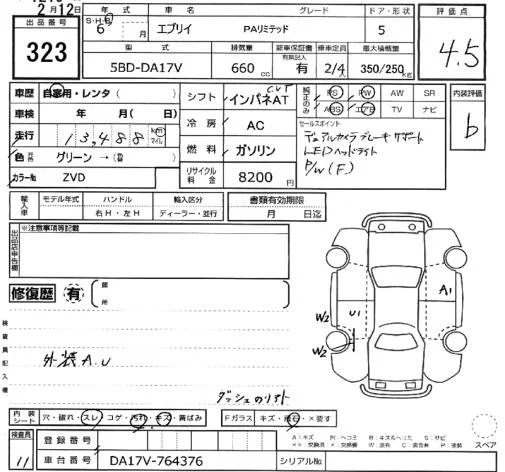 2月12日
出品番号 323
年式 S・H・R 6 年 月
車名 エブリイ
グレード PAリミテッド
ドア・形状 5
評価点 4.5
型式 5BD-DA17V
排気量 660 cc
新車保証書 有無記入 有
乗車定員 2/4人
最大積載量 350/250 kg
車歴 自家用・レンタ ( )
シフト インパネAT CVT
純正のみ PS PW AW SR
ABS エアB TV ナビ
内装評価 b
車検 年 月( 日)
冷房 AC
セールスポイント
デュアルカメラブレーキサポート
LEDヘッドライト
P/W (F)
走行 13,488 km マイル
燃料 ガソリン
色 グリーン →( )
カラーNo ZVD
リサイクル料金 8200 円
輸入車 モデル年式 ハンドル 右H・左H 輸入区分 ディーラー・並行
書類有効期限 月 日迄
出品店申告欄 ※注意事項等記載
修復歴 有 箇所
検査員記入欄
外装A.U
ダッシュのリフト
A1
U1
W2
W2
内装シート 穴・破れ・スレ・コゲ・汚れ・キズ・黄ばみ
Fガラス キズ・飛石・×要す
検査員 11
登録番号
A：キズ P：ヘコミ B：キズ&ヘコミ S：サビ
スペア
車台番号 DA17V-764376
シリアルNo.